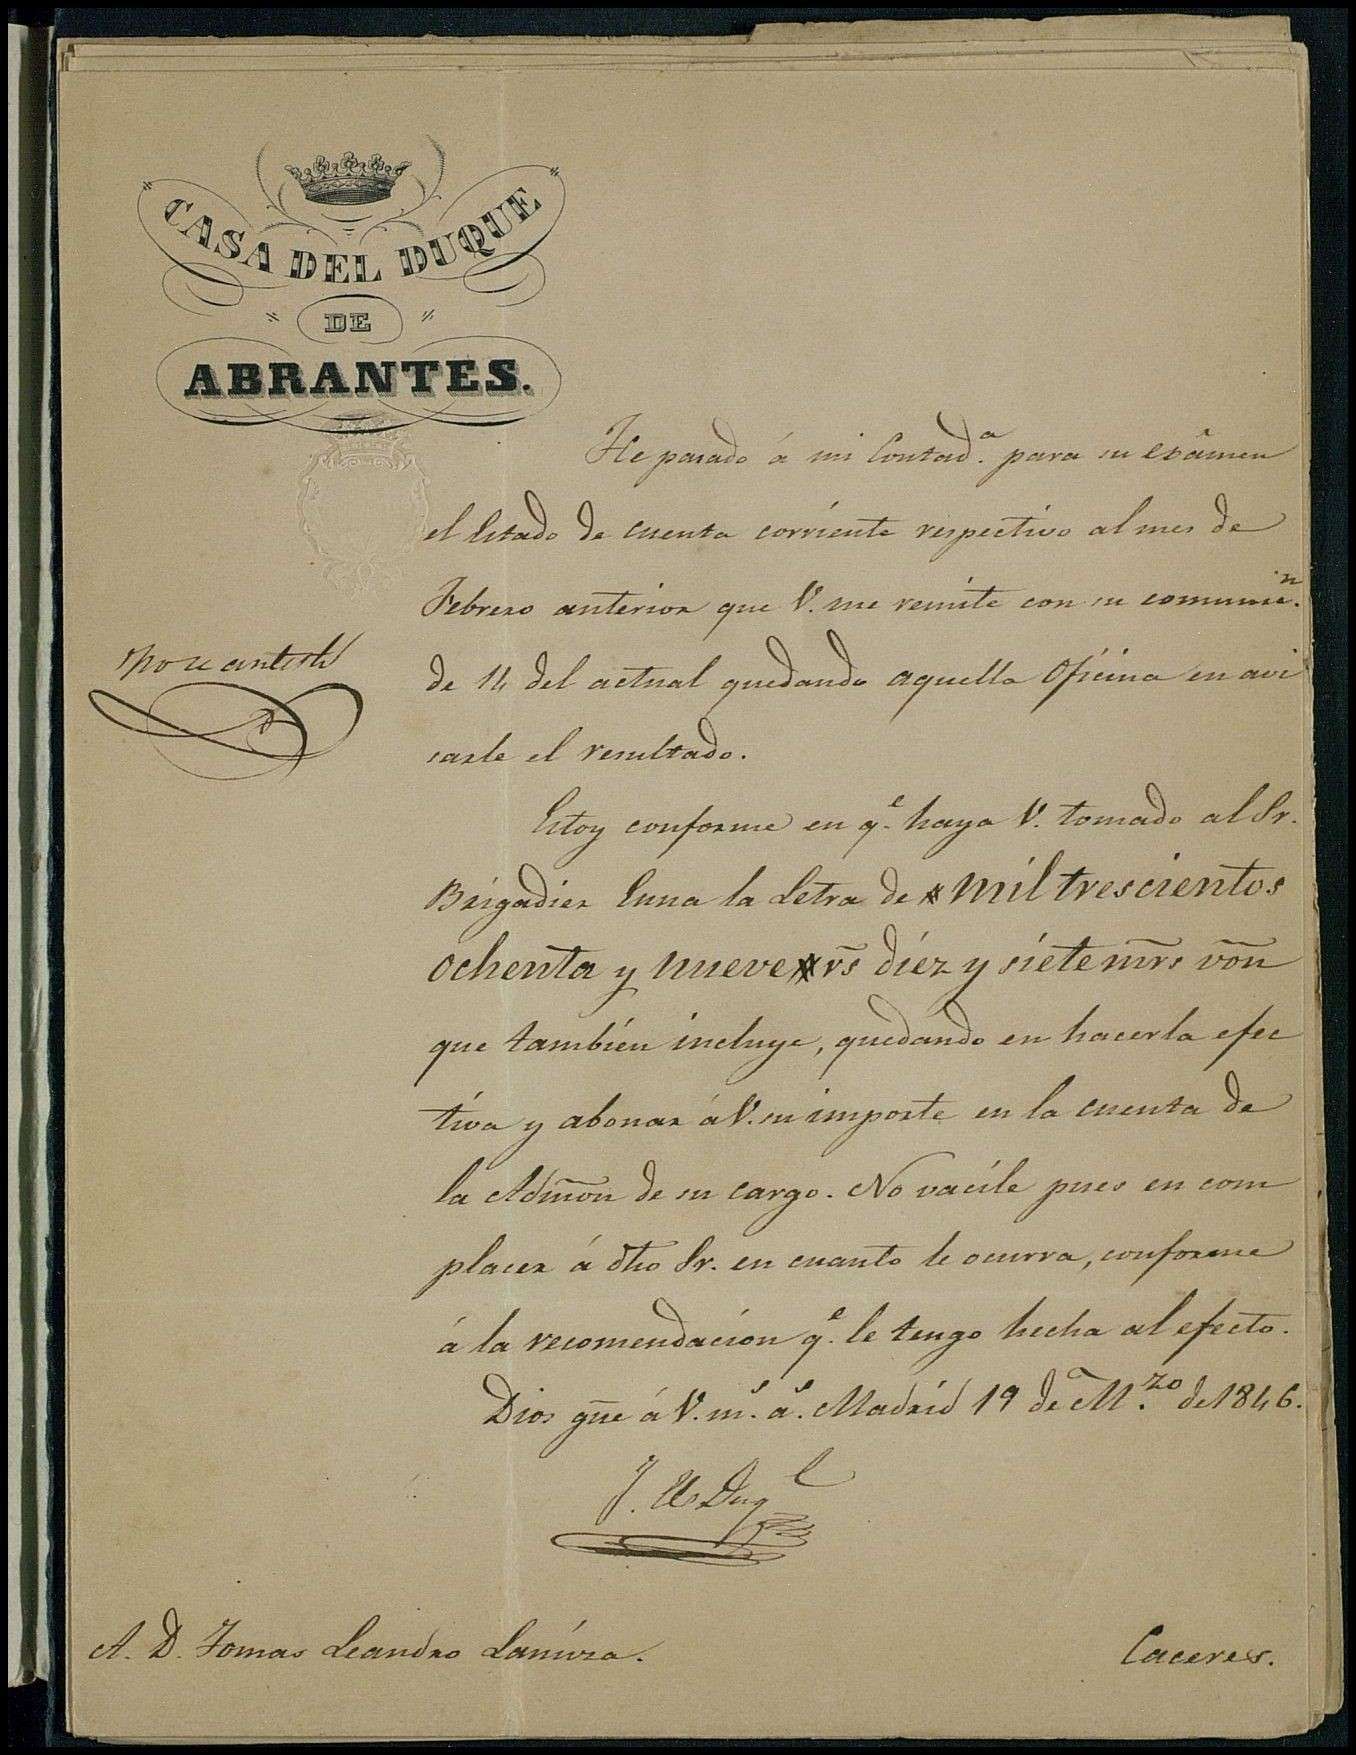 CASA DEL DUQUE
DE
ABRANTES.
He pasado á mi Contad.ª para su exâmen
el Estado de cuenta corriente respectivo al mes de
Febrero anterior que V. me remite con su comunic.n
de 14 del actual quedando aquella Oficina en avi
sarle el resultado.
Estoy conforme en q.e haya V. tomado al Sr.
Brigadier Cuna la Letra de # mil trescientos
ochenta y nueve # rs̃ diez y siete mrs̃ võn
que también incluye, quedando en hacerla efec
tiva y abonar á V. su importe en la cuenta de
la Admõn de su cargo. No vacile pues en com
placer á dho Sr. en cuanto le ocurra, conforme
á la recomendacion q.e le tengo hecha al efecto.
Dios gũe á V. m.s a.s Madrid 19 de M.zo de 1846.
J. El Duq.e
A. D. Tomas Leandro Lanuza.
Caceres.